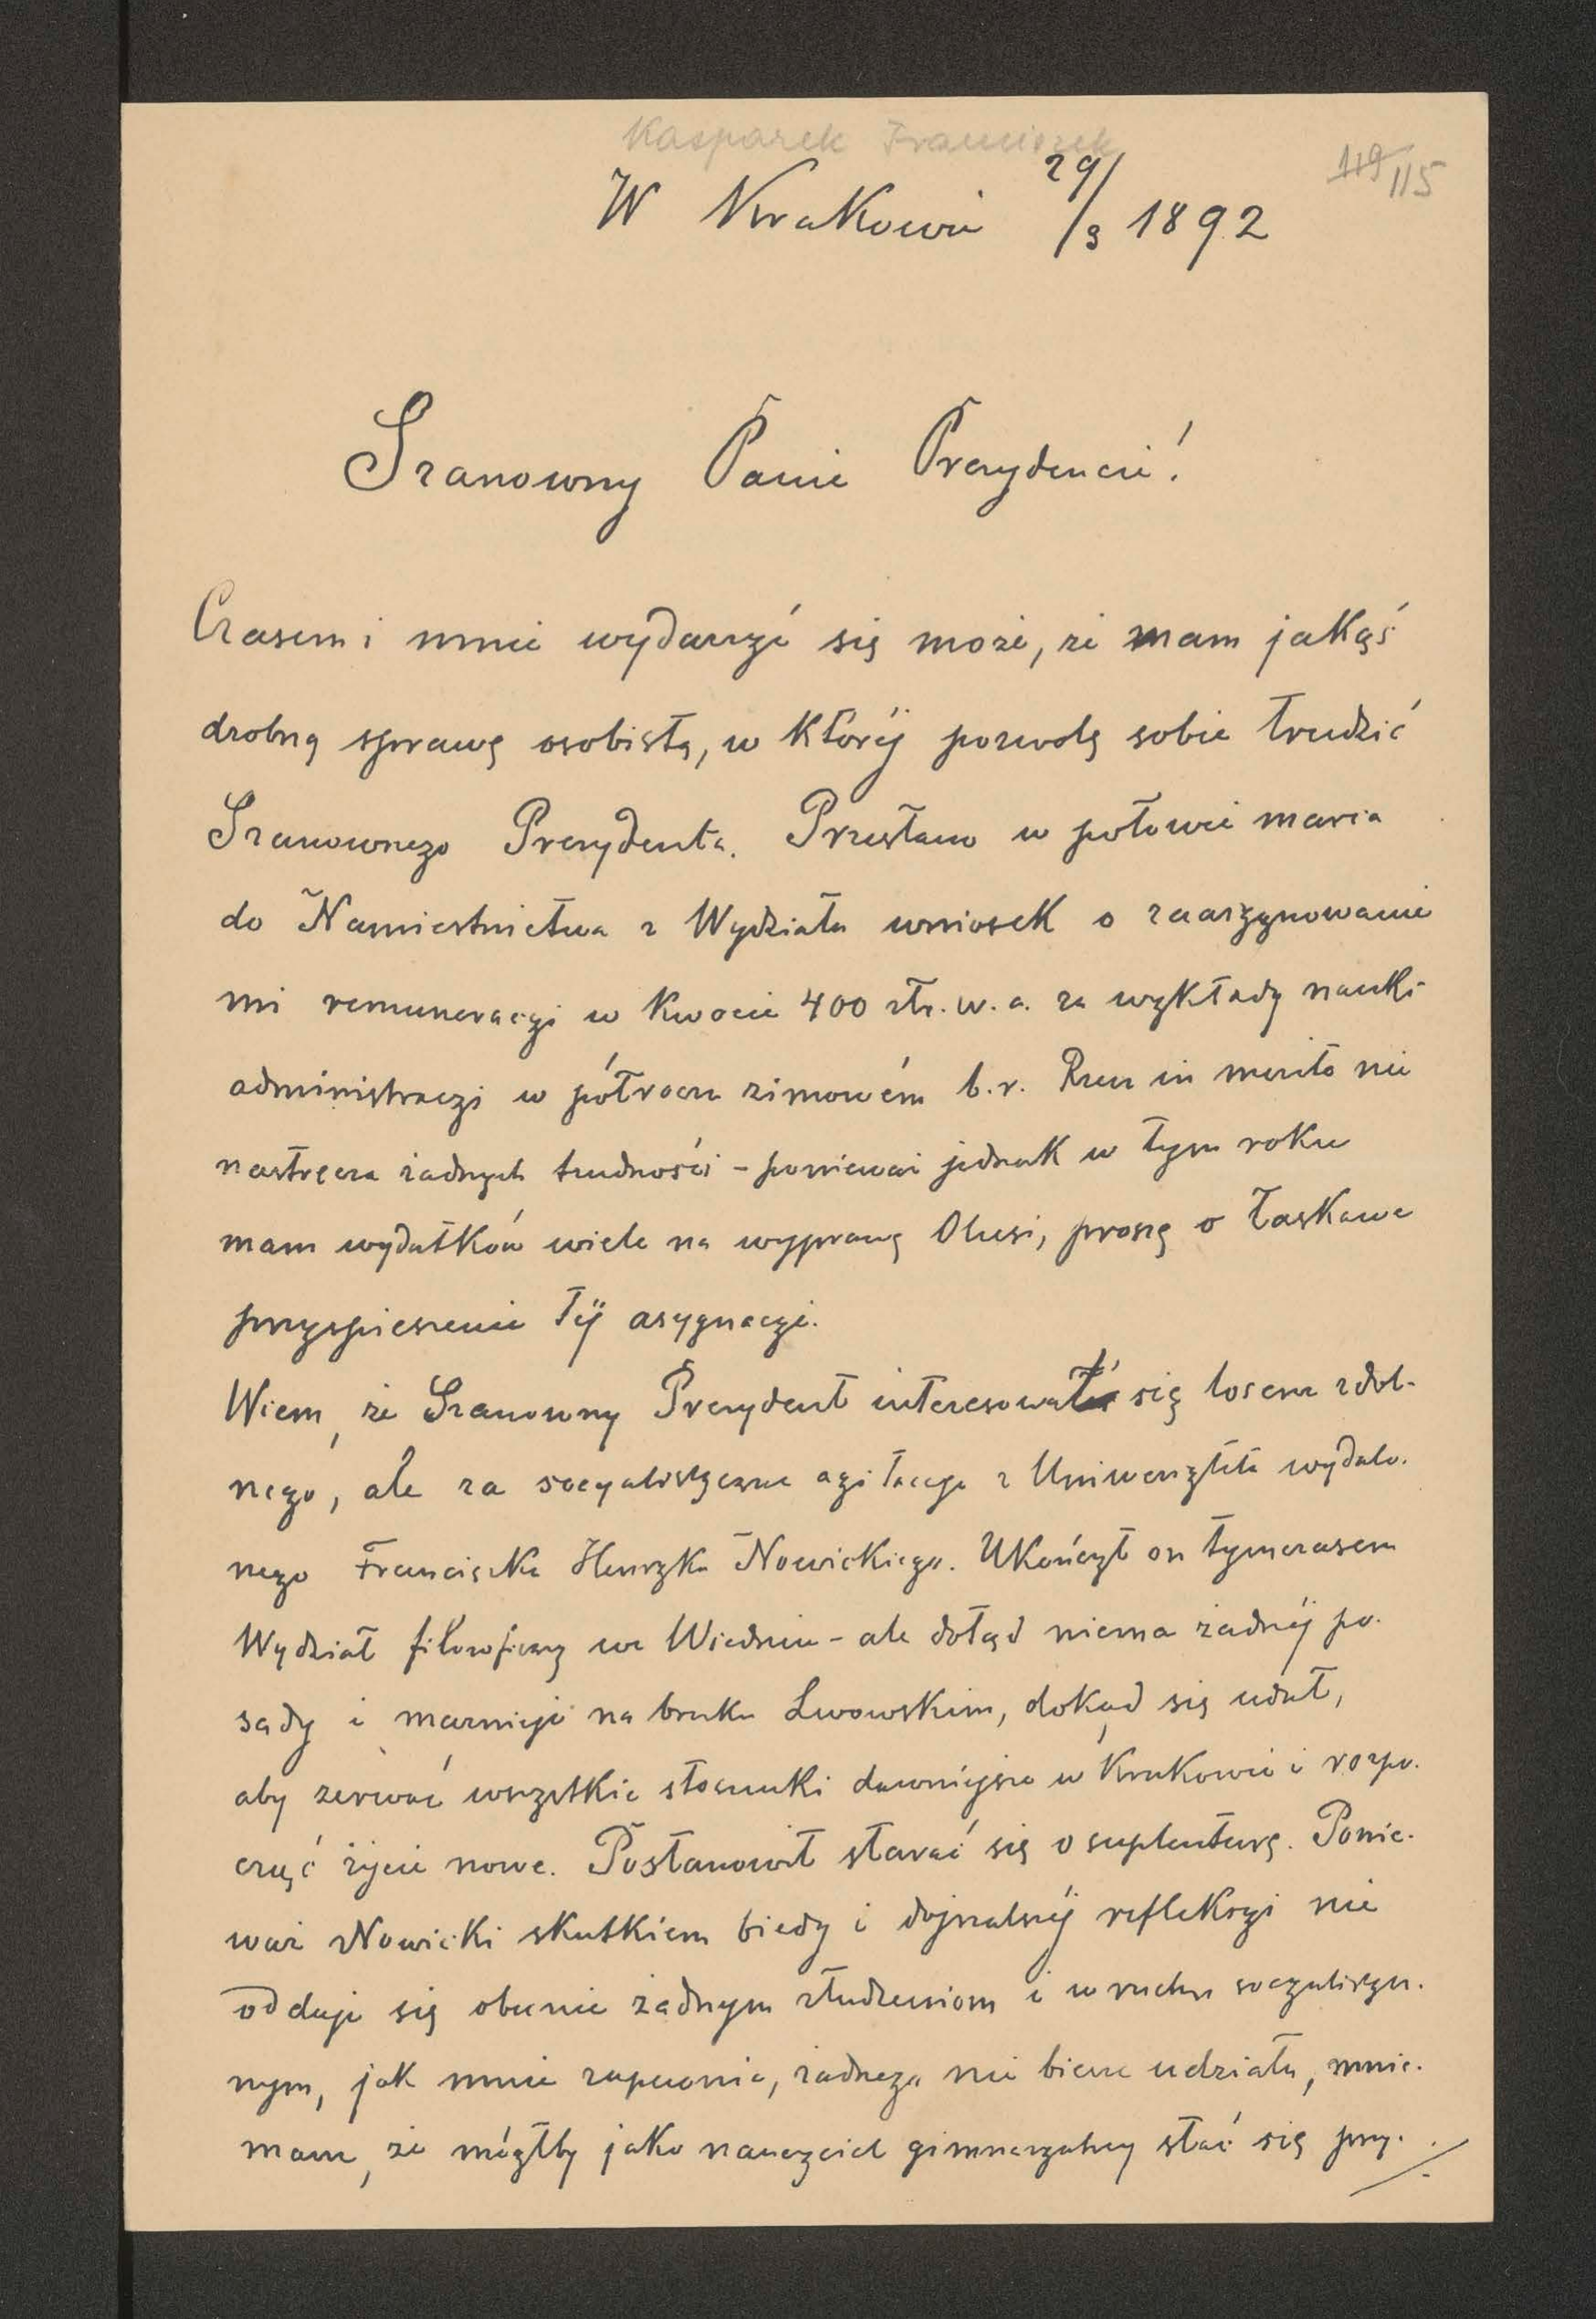 Kasparek Franciszek
119 115
W Krakowie 29/3 1892
Szanowny Panie Prezydencie!
Czasem i mnie wydarzyć się może, że mam jakąś
drobną sprawę osobistą, w któréj pozwolę sobie trudzić
Szanownego Prezydenta. Przesłano w połowie marca
do Namiestnictwa z Wydziału wniosek o zaasygnowanie
mi remuneracyi w kwocie 400 złr. w. a. za wykłady nauki
administracyi w półroczu zimowém b. r. Rzecz in merito nie
nastręcza żadnych trudności - ponieważ jednak w tym roku
mam wydatków wiele na wyprawę Olusi, proszę o łaskawe
przyspieszenie téj asygnacyi.
Wiem, że Szanowny Prezydent interesował się losem zdol-
nego, ale za socyalistyczne agitacye z Uniwersytetu wydalo-
nego Franciszka Henryka Nowickiego. Ukończył on tymczasem
Wydział filozoficzny we Wiedniu - ale dotąd niema żadnéj po-
sady i marnieje na bruku Lwowskim, dokąd się udał,
aby zerwać wszystkie stosunki dawniejsze w Krakowie i rozpo-
cząć życie nowe. Postanowił starać się o suplenturę. Ponie-
waż Nowicki skutkiem biedy i dojrzalszéj refleksyi nie
oddaje się obecnie żadnym złudzeniom i w ruchu socyalistycz-
nym, jak mnie zapewnia, żadnego nie bierze udziału, mnie-
mam, że mógłby jako nauczyciel gimnazyalny stać się przy-
./.